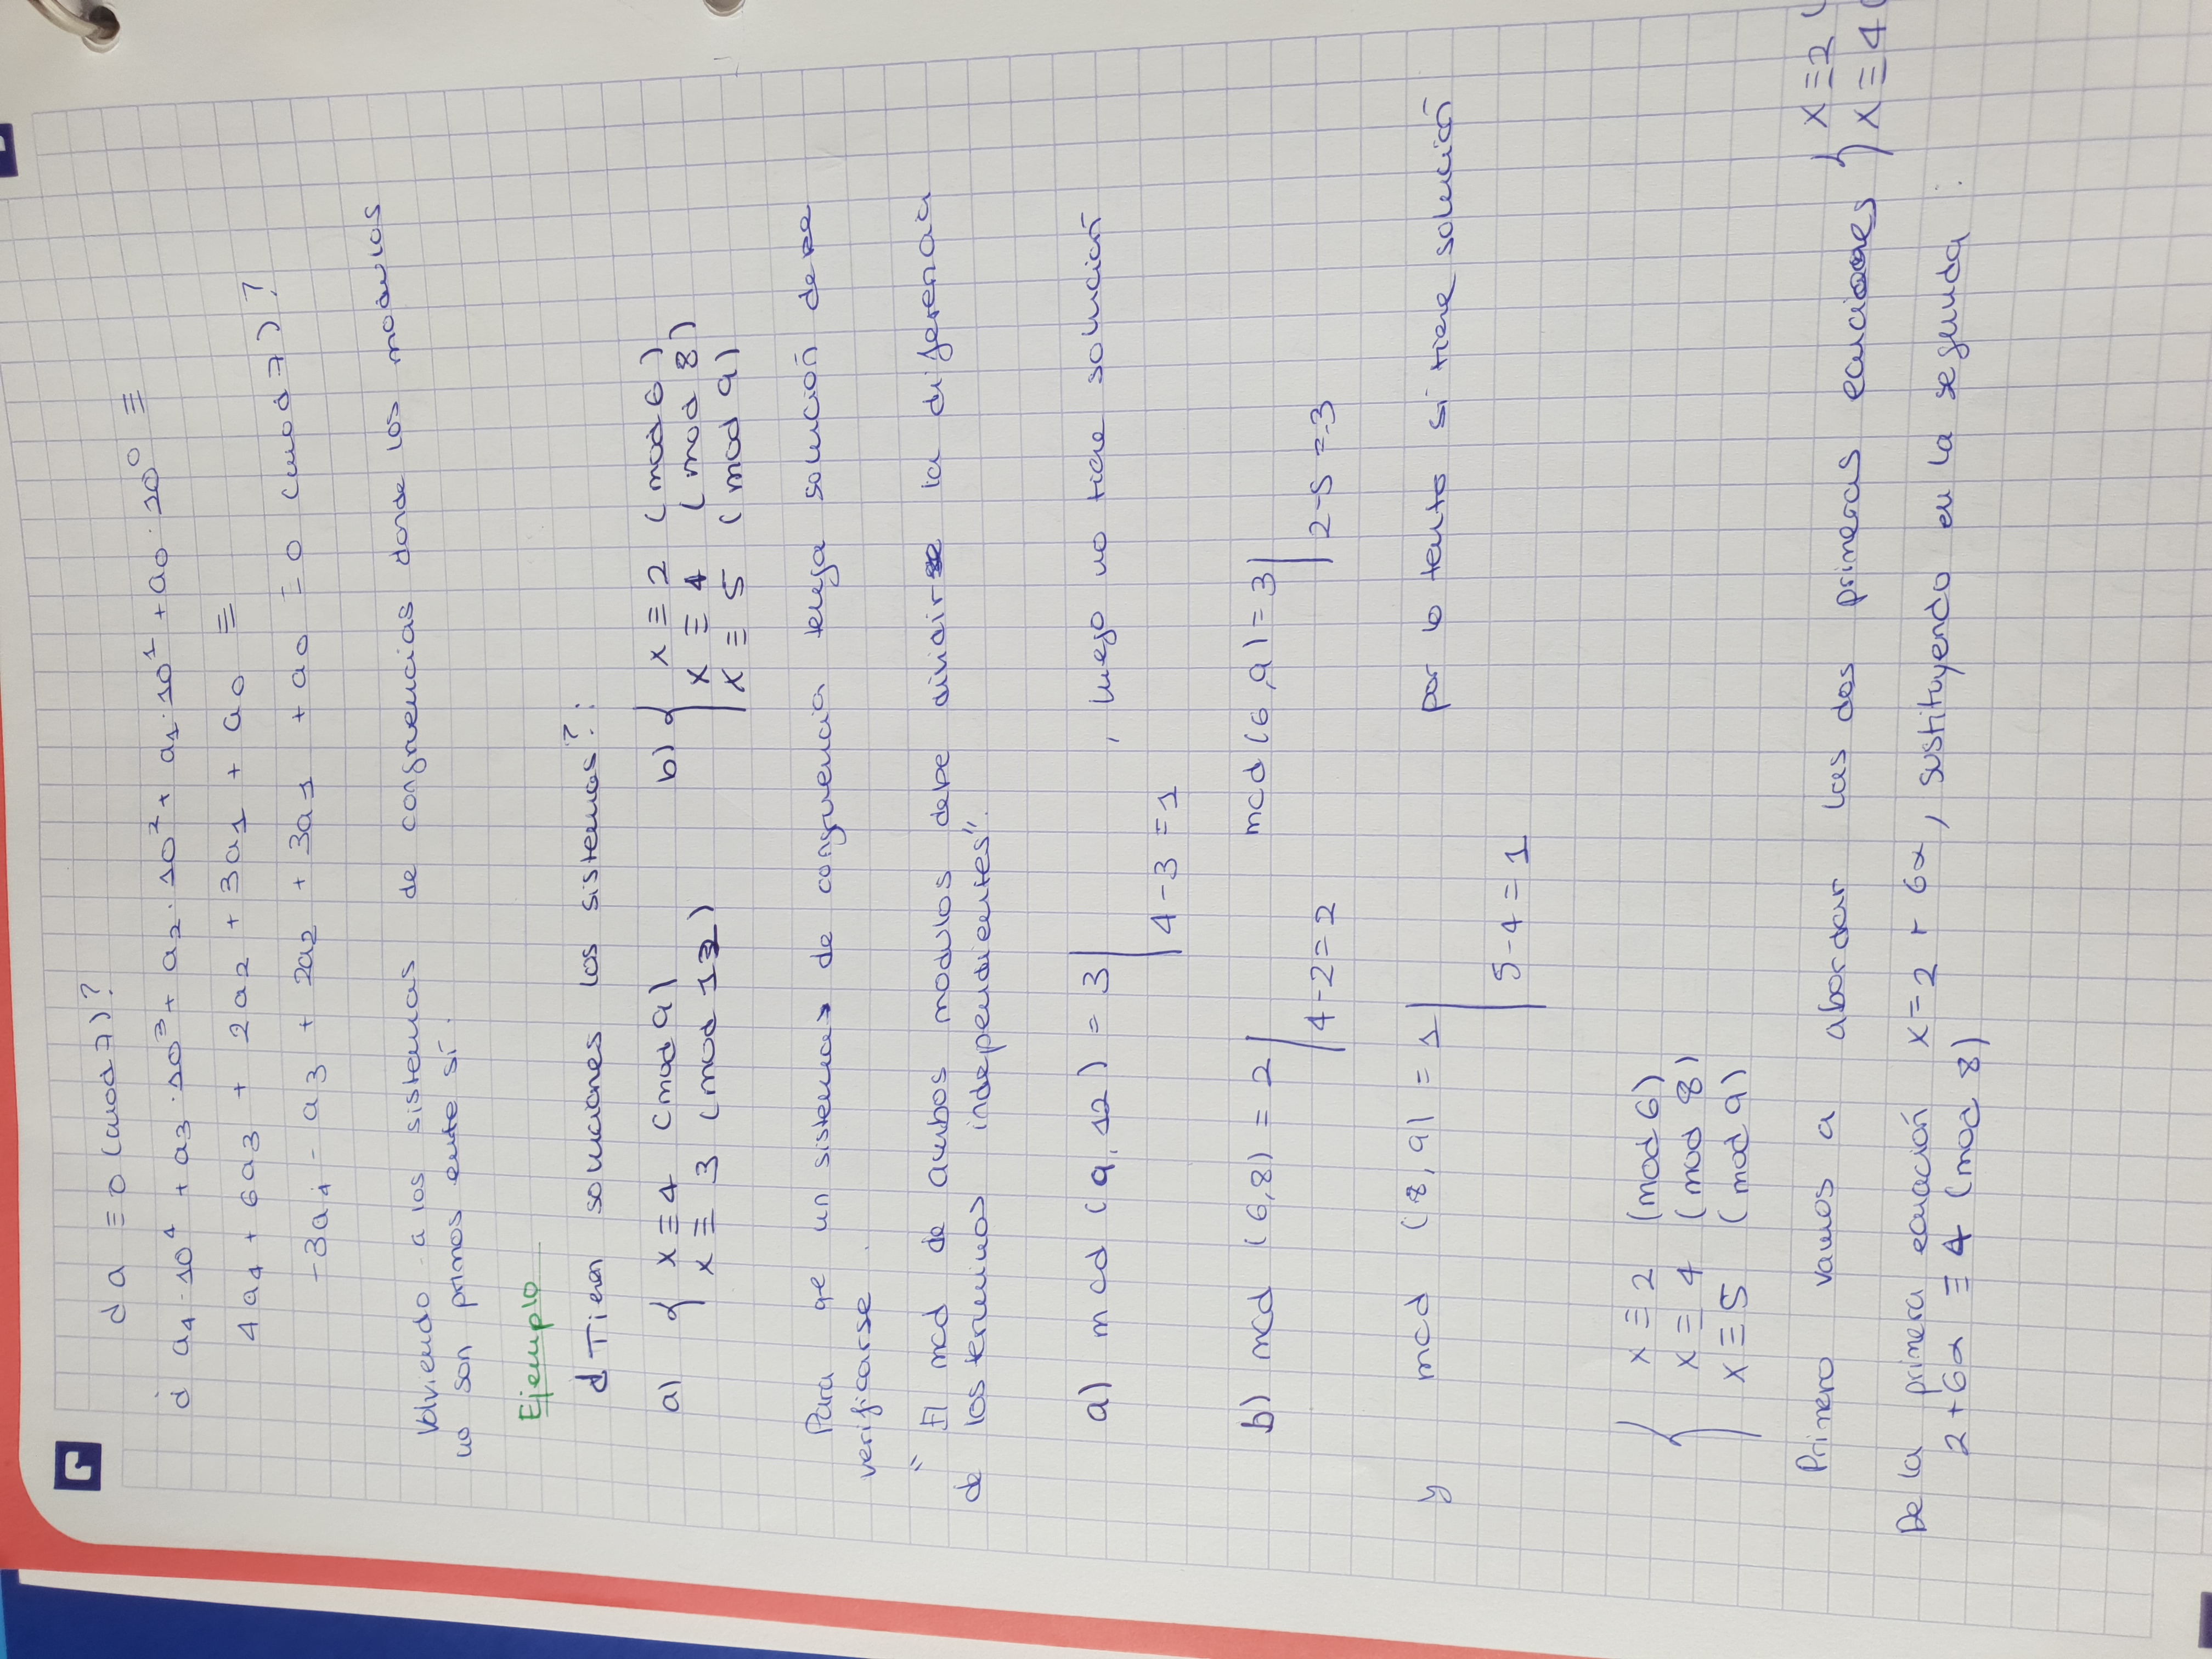 ¿ a ≡ 0 (mod 7)?
¿ a₄·10⁴ + a₃·10³ + a₂·10² + a₁·10¹ + a₀·10⁰ ≡
4a₄ + 6a₃ + 2a₂ + 3a₁ + a₀ ≡
-3a₄ - a₃ + 2a₂ + 3a₁ + a₀ ≡ 0 (mod 7)?
Volviendo a los sistemas de congruencias donde los modulos
no son primos entre sí.
Ejemplo
¿Tienen soluciones los sistemas?:
a) { x ≡ 4 (mod 9) b) { x ≡ 2 (mod 6)
x ≡ 3 (mod 12) x ≡ 4 (mod 8)
x ≡ 5 (mod 9)
Para qe un sistema de congruencia tenga solución debe
verificarse.
" El mcd de ambos modulos debe dividir la diferencia
de los terminos independientes".
a) mcd (9,12) = 3 | 4-3=1 , luego no tiene solución
b) mcd (6,8) = 2 | 4-2=2 mcd (6,9) = 3 | 2-5=-3
y mcd (8,9) = 1 | 5-4=1 por lo tanto si tiene solución
{ x ≡ 2 (mod 6)
x ≡ 4 (mod 8)
x ≡ 5 (mod 9)
Primero vamos a abordar las dos primeras ecuaciones { x ≡ 2 (
x ≡ 4 (
De la primera ecuación x = 2 + 6α, sustituyendo en la segunda:
2 + 6α ≡ 4 (mod 8)